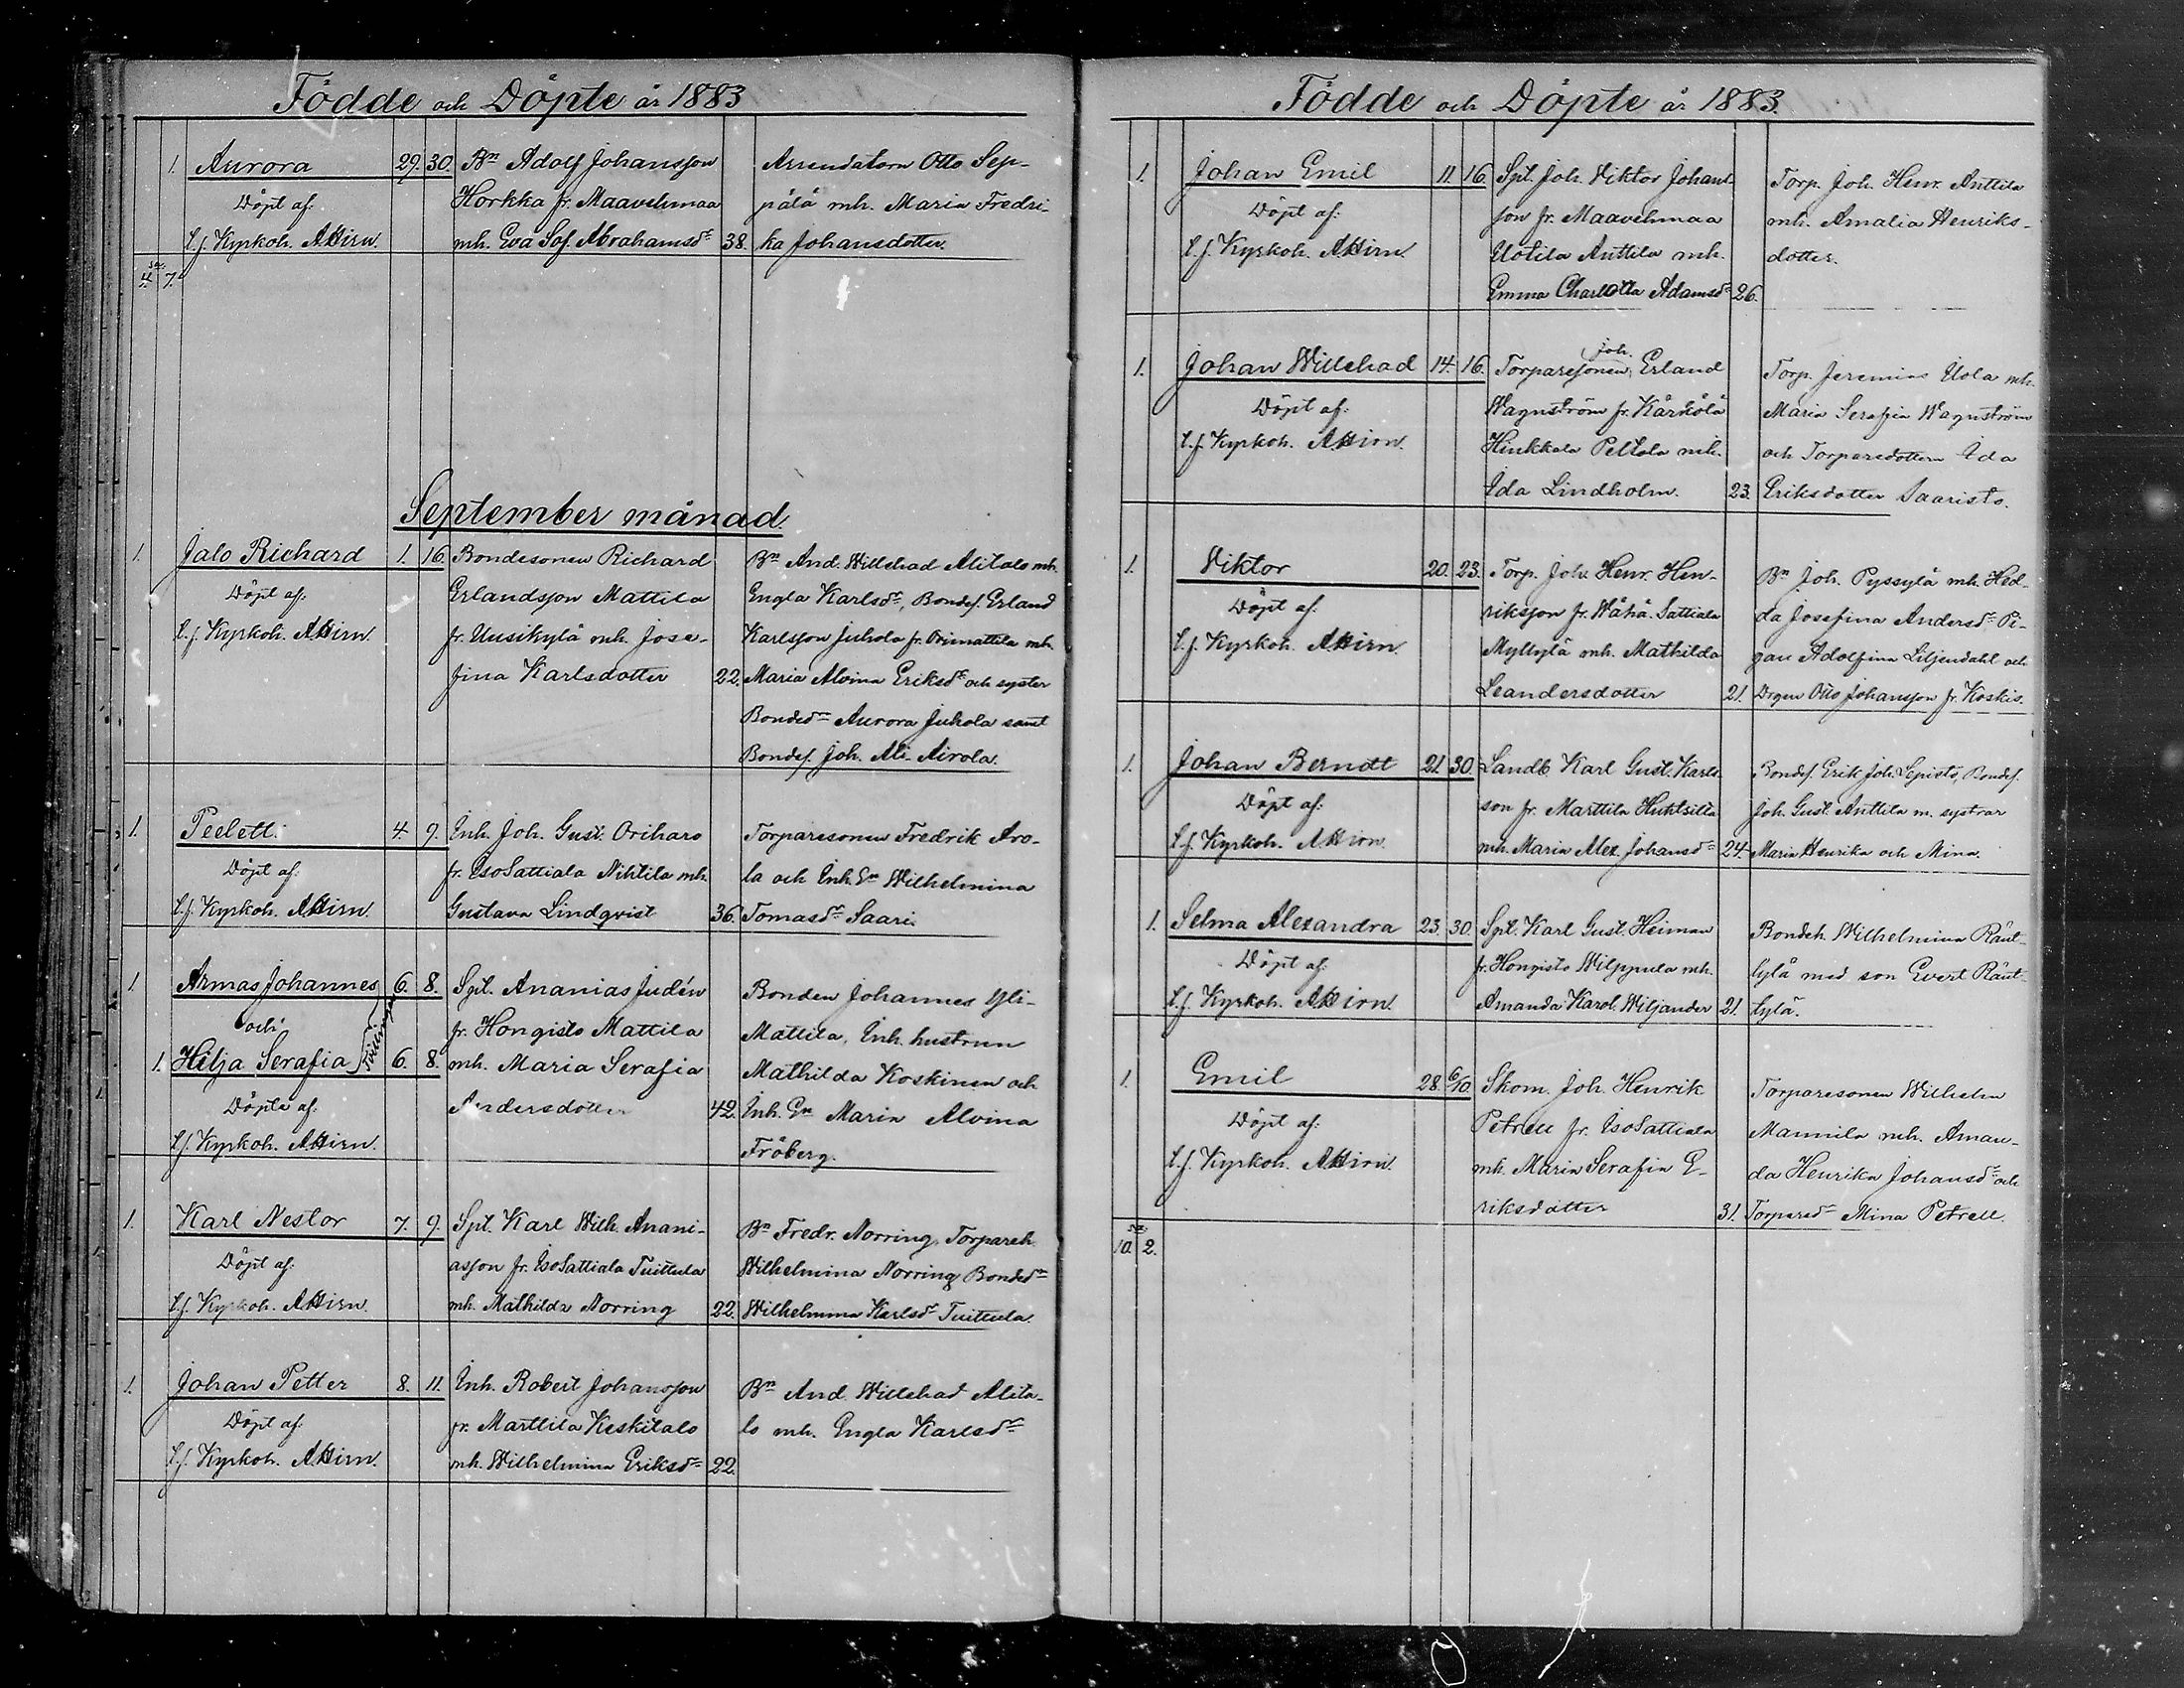 Födde och Döpte år 1883
1. Aurora 29. 30. Bn Adolf Johansson Arrendatorn Otto Sep-
Döpt af: Horkka fr. Maavehmaa pälä mh. Maria Fredri-
t.f. Kyrkoh. AHirn. mh. Eva Sof. Abrahamsdr 38. ka Johansdotter.
Sa: 4. 7.
September månad.
1. Jalo Richard 1. 16. Bondesonen Richard Bn And. Willehad Alitalo mh.
Döpt af: Erlandsson Mattila Engla Karlsdr, Bondes. Erland
t.f. Kyrkoh. AHirn. fr. Uusikylä mh. Jose- Karlsson Juhola fr. Orimattila mh.
fina Karlsdotter 22. Maria Alvina Eriksdr och syster
Bondedr Aurora Juhola samt
Bondes. Joh. Ali-Airola.
1. Peelett. 4. 9. Inh. Joh. Gust. Oriharo Torparesonen Fredrik Aro-
Döpt af: fr. IsoSattiala Nihtila mh. la och Inh. En Wilhelmina
t.f. Kyrkoh. AHirn. Gustava Lindqvist 36. Tomasdr Saari.
1. Armas Johannes 6. 8. Spt. Ananias Judén Bonden Johannes Yli-
och Tvillingar fr. Hongisto Mattila Mattila, Inh. hustrun
1. Hilja Serafia 6. 8. mh. Maria Serafia Mathilda Koskinen och
Döpta af: Andersdotter 42. Inh. En Maria Alvina
t.f. Kyrkoh. AHirn. Fröberg.
1. Karl Nestor 7. 9. Spt. Karl Wilh. Anani- Bn Fredr. Norring, Torpareh.
Döpt af: asson fr. IsoSattiala Tuittula Wilhelmina Norring Bondedr
t.f. Kyrkoh. AHirn. mh. Mathilda Norring 22. Wilhelmina Karlsdr Tuittula.
1. Johan Petter 8. 11. Inh. Robert Johansson Bn And. Willehad Alita-
Döpt af: fr. Marttila Keskitalo lo mh. Engla Karlsdr
t.f. Kyrkoh. AHirn. mh. Wilhelmina Eriksdr 22.
Födde och Döpte år 1883.
1. Johan Emil 11. 16. Spt. Joh. Viktor Johans- Torp. Joh. Henr. Anttila
Döpt af: son fr. Maavehmaa mh. Amalia Henriks-
t.f. Kyrkoh. AHirn. Uotila Anttila mh. dotter.
Emma Charlotta Adamsdr 26.
1. Johan Willehad 14. 16. Torparesonen Joh. Erland Torp. Jeremias Uola mh.
Döpt af: Wagnström fr. Kärkölä Maria Serafia Wagnström
t.f. Kyrkoh. AHirn. Hinkkala Peltola mh. och Torparedottern Ida
Ida Lindholm. 23. Eriksdotter Saaristo.
1. Viktor 20. 23. Torp. Joh. Henr. Hen- Bn Joh. Pyssylä mh. Hed-
Döpt af: riksson fr. Wähä Sattiala da Josefina Andersdr Pi-
t.f. Kyrkoh. AHirn. Myllylä mh. Mathilda gan Adolfina Liljendahl och
Leandersdotter 21. Drgen Otto Johansson fr. Koskis.
1. Johan Berndt 21. 30. Landb. Karl Gust. Karls- Bondes. Erik Joh. Sepistö, Bondes.
Döpt af: son fr. Marttila Huhtsilta Joh. Gust. Anttila m. systrar
t.f. Kyrkoh. AHirn. mh. Maria Alex. Johansdr 24. Maria Henrika och Mina.
1. Selma Alexandra 23. 30. Spt. Karl Gust. Heiman Bondeh. Wilhelmina Ränt-
Döpt af: fr. Hongisto Wilppula mh. tylä med son Evert Ränt-
t.f. Kyrkoh. AHirn. Amanda Karol. Wiljander 21. tylä.
1. Emil 28. 6/10. Skom. Joh. Henrik Torparesonen Wilhelm
Döpt af: Petrell fr. IsoSattiala Mannila mh. Aman-
t.f. Kyrkoh. AHirn. mh. Maria Serafia E- da Henrika Johansdr och
riksdotter 31. Torparedr Mina Petrell.
Sa: 10. 2.